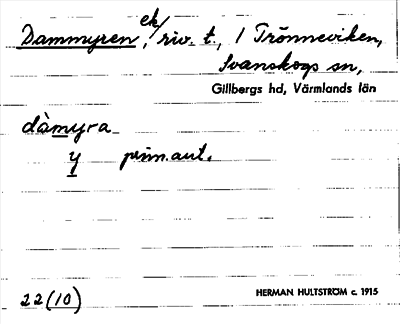 Dammyren, ek, riv. t., 1 Trönneviken,
Svanskogs sn,
Gillbergs hd, Värmlands län
dàmyra
y prim.aut.
22(10)
HERMAN HULTSTRÖM c. 1915